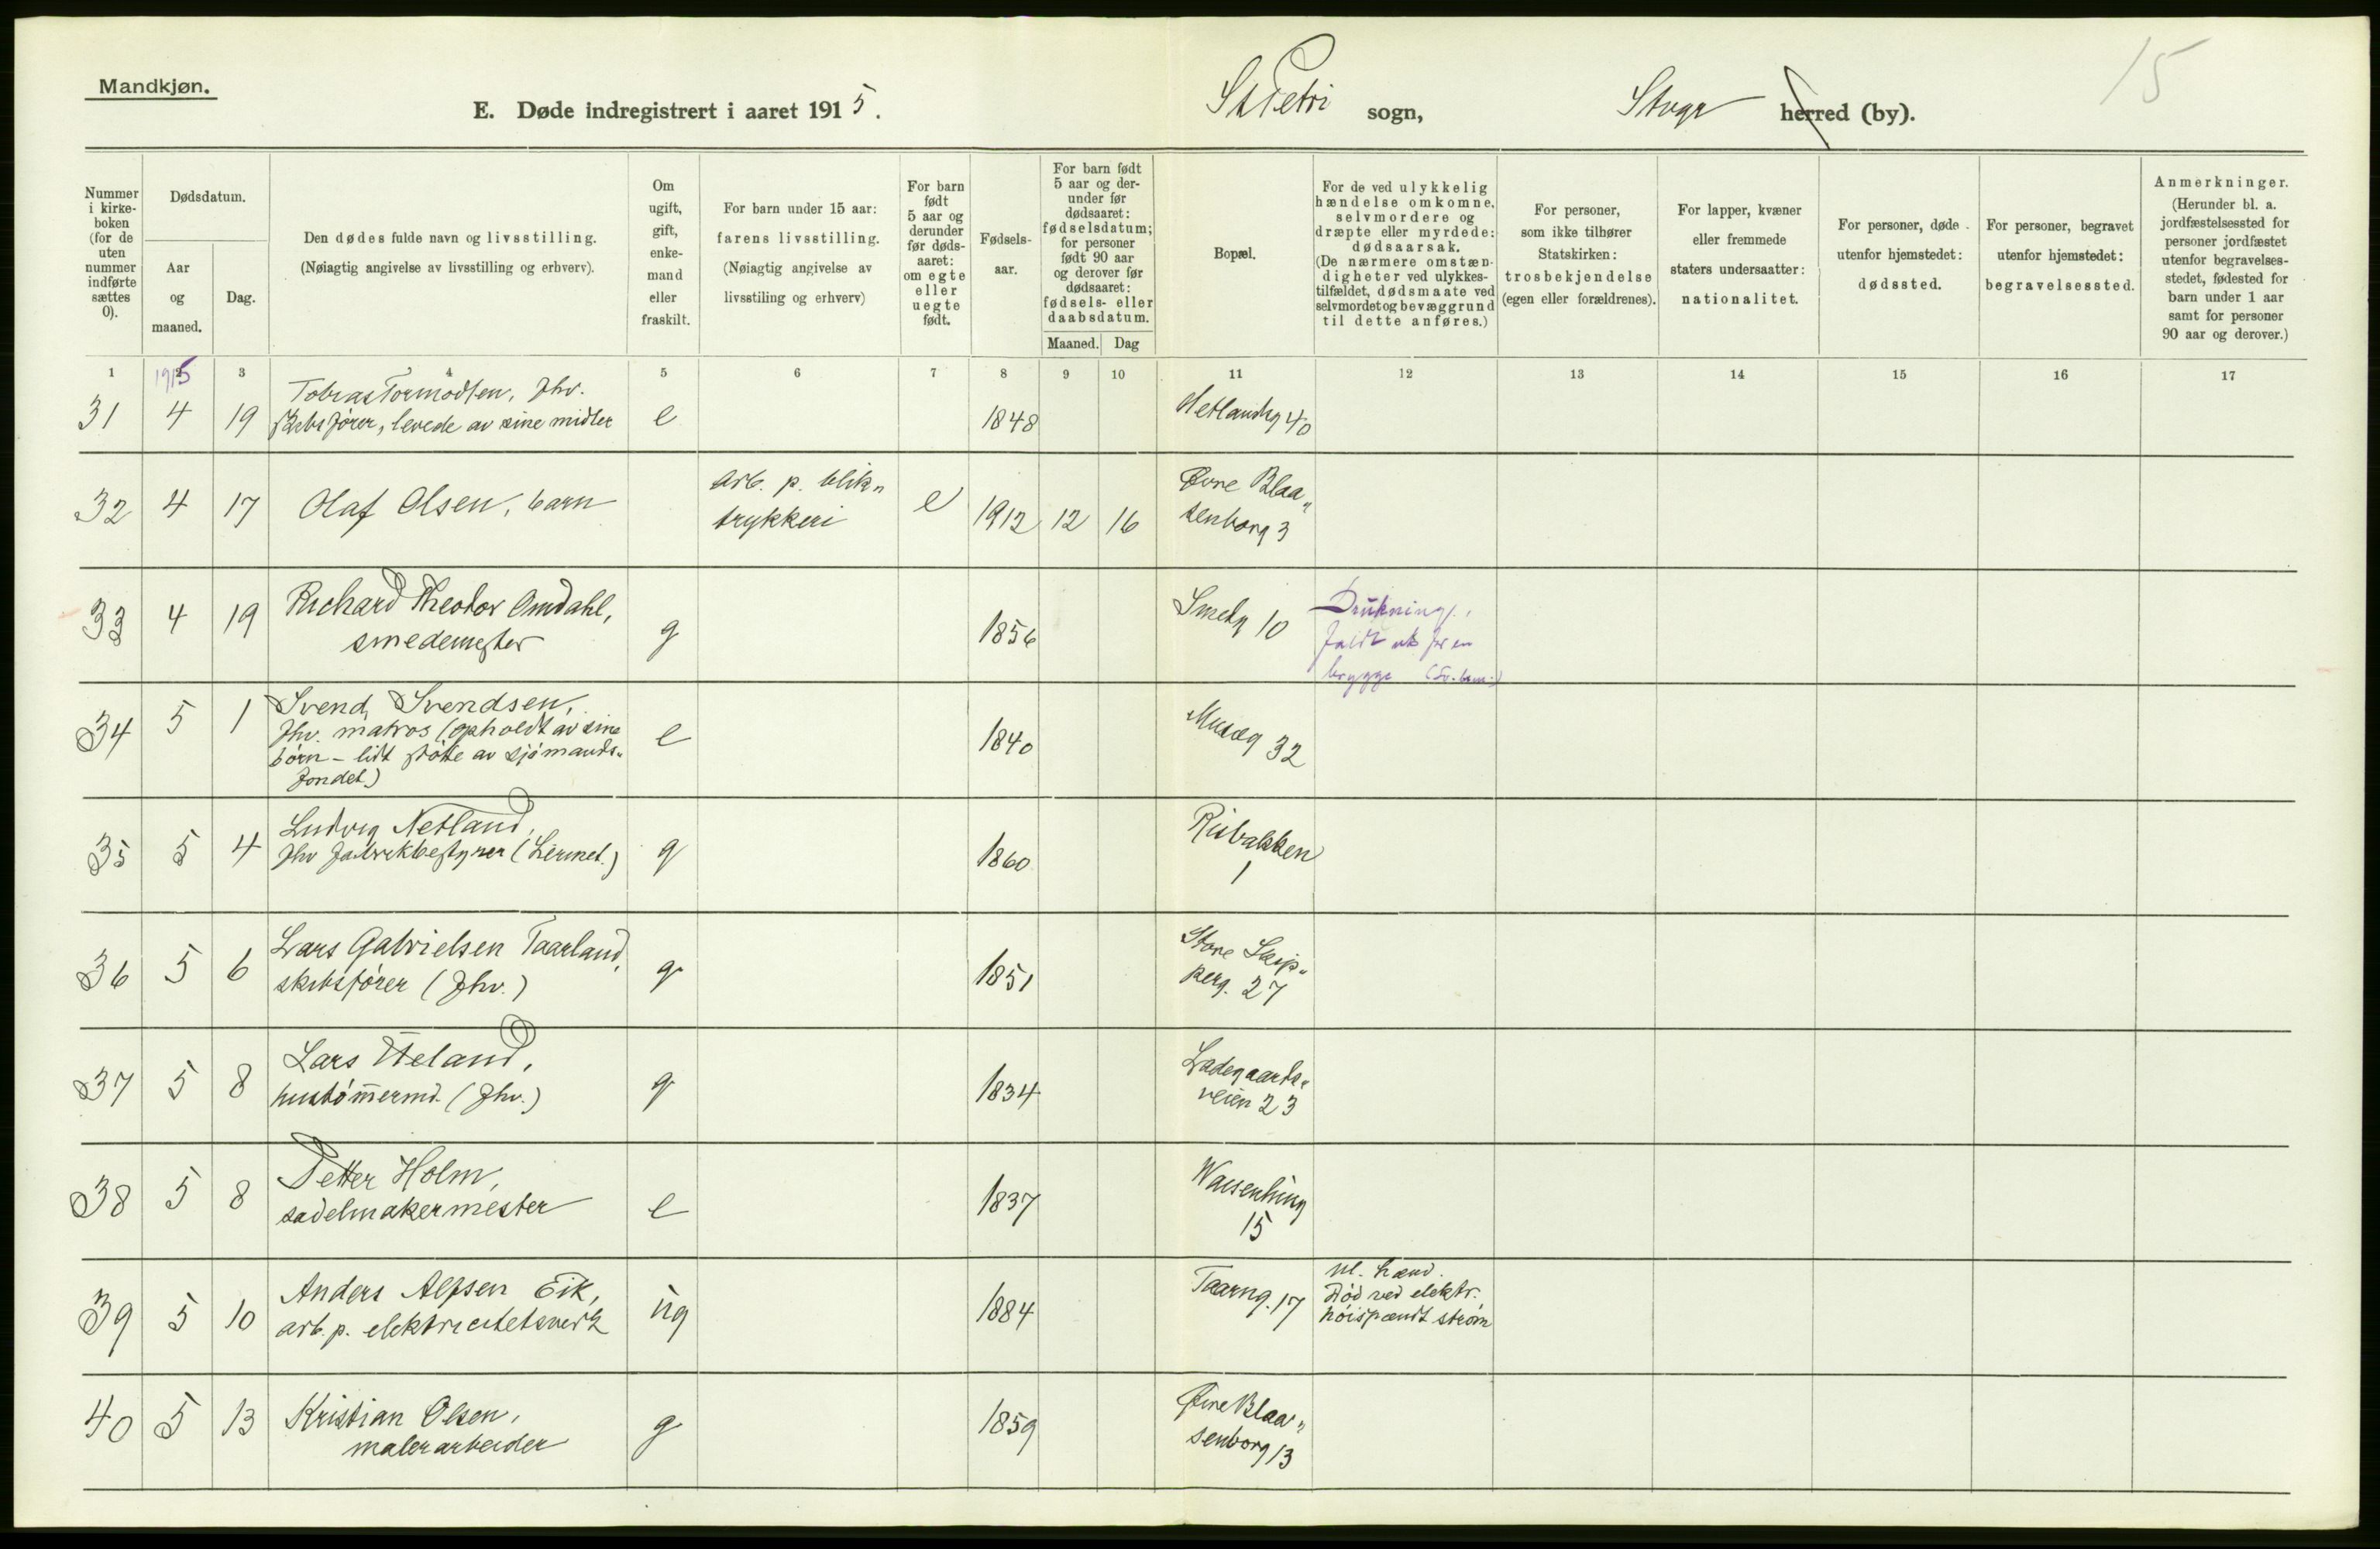 Mandkjøn.
15
E. Døde indregistrert i aaret 1915.
St Petri sogn, Stvgr herred (by).
Nummer
i kirke-
boken
(for de
uten
nummer
indførte
sættes
0).
Dødsdatum.
Aar
og
maaned.
Dag.
Den dødes fulde navn og livsstilling.
(Nøiagtig angivelse av livsstilling og erhverv).
Om
ugift,
gift,
enke-
mand
eller
fraskilt.
For barn under 15 aar:
farens livsstilling.
(Nøiagtig angivelse av
livsstiling og erhverv)
For barn
født
5 aar og
derunder
før døds-
aaret:
om egte
eller
uegte
født.
Fødsels-
aar.
For barn født
5 aar og der-
under før
dødsaaret:
fødselsdatum;
for personer
født 90 aar
og derover før
dødsaaret:
fødsels- eller
daabsdatum.
Maaned. Dag
Bopæl.
For de ved ulykkelig
hændelse omkomne,
selvmordere og
dræpte eller myrdede:
dødsaarsak.
(De nærmere omstæn-
digheter ved ulykkes-
tilfældet, dødsmaate ved
selvmordet og bevæggrund
til dette anføres.)
For personer,
som ikke tilhører
Statskirken:
trosbekjendelse
(egen eller forældrenes).
For lapper, kvæner
eller fremmede
staters undersaatter:
nationalitet.
For personer, døde
utenfor hjemstedet:
dødssted.
For personer, begravet
utenfor hjemstedet:
begravelsessted.
Anmerkninger.
(Herunder bl. a.
jordfæstelsessted for
personer jordfæstet
utenfor begravelses-
stedet, fødested for
barn under 1 aar
samt for personer
90 aar og derover.)
1 2 3 4 5 6 7 8 9 10 11 12 13 14 15 16 17
1915
Tobias Tormodsen, fhv.
31 4 19 skibsfører, levede av sine midler e 1848 Hetlandsg 40
32 4 17 Olaf Olsen, barn arb. p. blik„
trykkeri e 1912 12 16 Øvre Blaa„
senborg 3
33 4 19 Richard Theodor Omdahl,
smedemester g 1856 Smedg 10 Drukning,
faldt utfor en
brygge
34 5 1 Svend Svendsen,
fhv. matros (opholdt av sine
børn - lidt støtte av sjømands„
fondet) e 1840 Musæg 32
35 5 4 Ludvig Netland,
fhv fabrikbestyrer (Hermet.) g 1860 Risbakken
1
36 5 6 Lars Gabrielsen Taarland,
skibsfører (fhv.) g 1851 Store Skip„
perg. 27
37 5 8 Lars Heland,
hustømermd. (fhv.) g 1834 Ladegaards„
veien 23
38 5 8 Petter Holm,
sadelmakermester e 1837 Waisenhusg
15
39 5 10 Anders Alfsen Eik,
arb. p. elektricitetsverk ug 1884 Taarng. 17 ul. hænd.
Død ved elektr.
høispændt strøm
40 5 13 Kristian Olsen,
malerarbeider g 1859 Øvre Blaa„
senborg 13